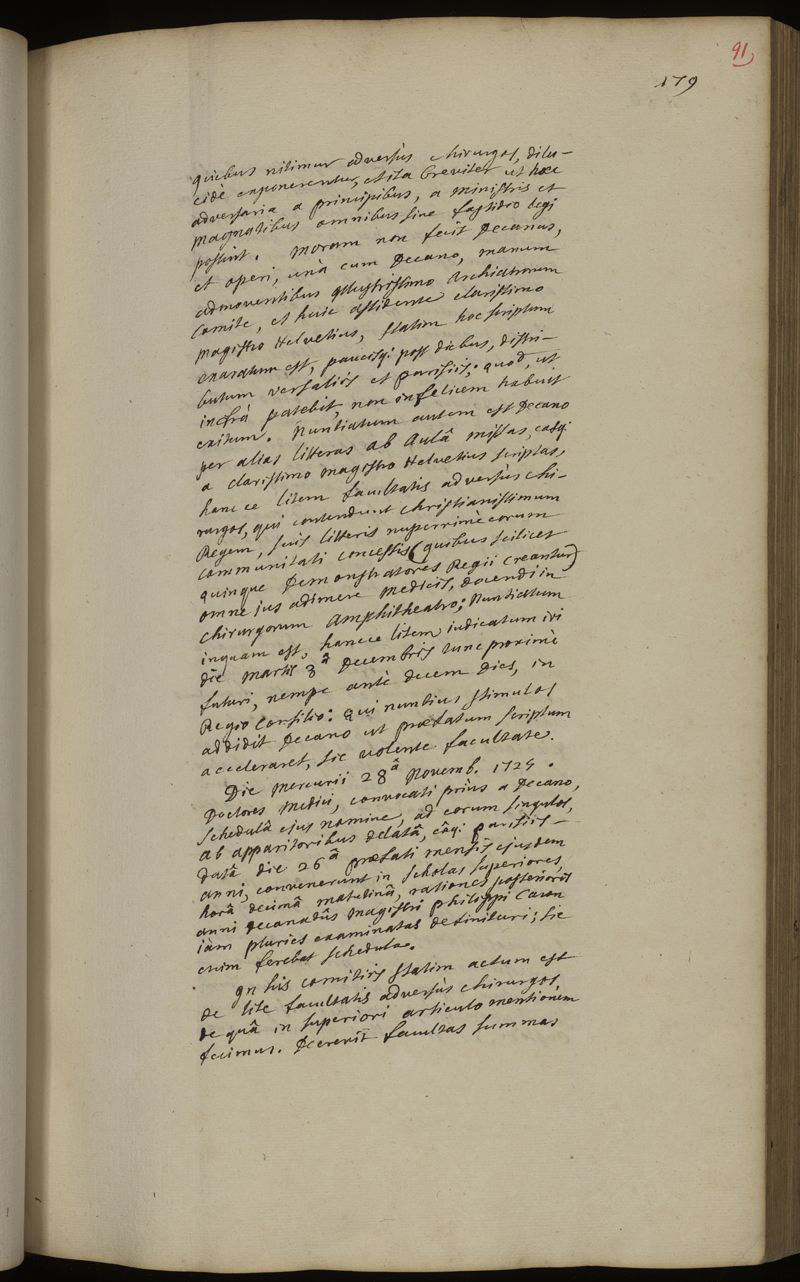 91
179
quibus nitimur adversùs chirurgos, dilu-
cidè exponerentur, et ita breviter ut hæc
adversaria a principibus, a ministris et
magnatibus omnibus sine fastidio legi
possint. Moram non fecit Decanus,
et operi, unà cum Decano, manum
admoventibus Illustrissimo Archiatrorum
Comite, et huic assidente clarissimo
magistro Helvetius, statim hoc scriptum
exaratum est, paucisq; post diebus, distri-
butum versaliis et parisiis, quod, ut
infrà patebit, non infelicem habuit
exitum. Nuntiatum autem est Decano
per alias litteras ab Aulâ missas, easq;
a clarissimo magistro Helvetius scriptas,
hance litem facultatis adversùs chi-
rurgos, qui contendunt christianissimum
Regem, suis litteris nuperrimè eorum
communitati concessis (quibus scilicet
quinque Demonstratores Regii creantur)
omne jus adimere medicis, docendi in
chirurgorum Amphitheatro; Nuntiatum
inquam est, hancce litem iudicatum iri
die martis 3ª Decembris tunc proximè
futuri, nempe antè decem dies, in
Regio Consilio: qui nuntius stimulos
addidit Decano ut præfatum scriptum
acceleraret, sic volente facultate.
Die mercurii 28ª Novemb. 1725.
Doctores medici, convocati priùs a Decano,
schedulâ ejus nomine, ad eorum singulos,
ab apparitoribus delatâ, eâq; parisiis
datâ die 26ª præfati mensis ejusdem
anni, convenerunt in scholas superiores
horâ decimâ matutinâ, rationes posterioris
anni decanatûs magistri philippi Caron
iàm pluries examinatas definituri; sic
enim ferebat schedula.
In his comitiis statim actum est
de lite facultatis adversùs chirurgos,
de quâ in superiori articulo mentionem
fecimus. Decrevit facultas summas